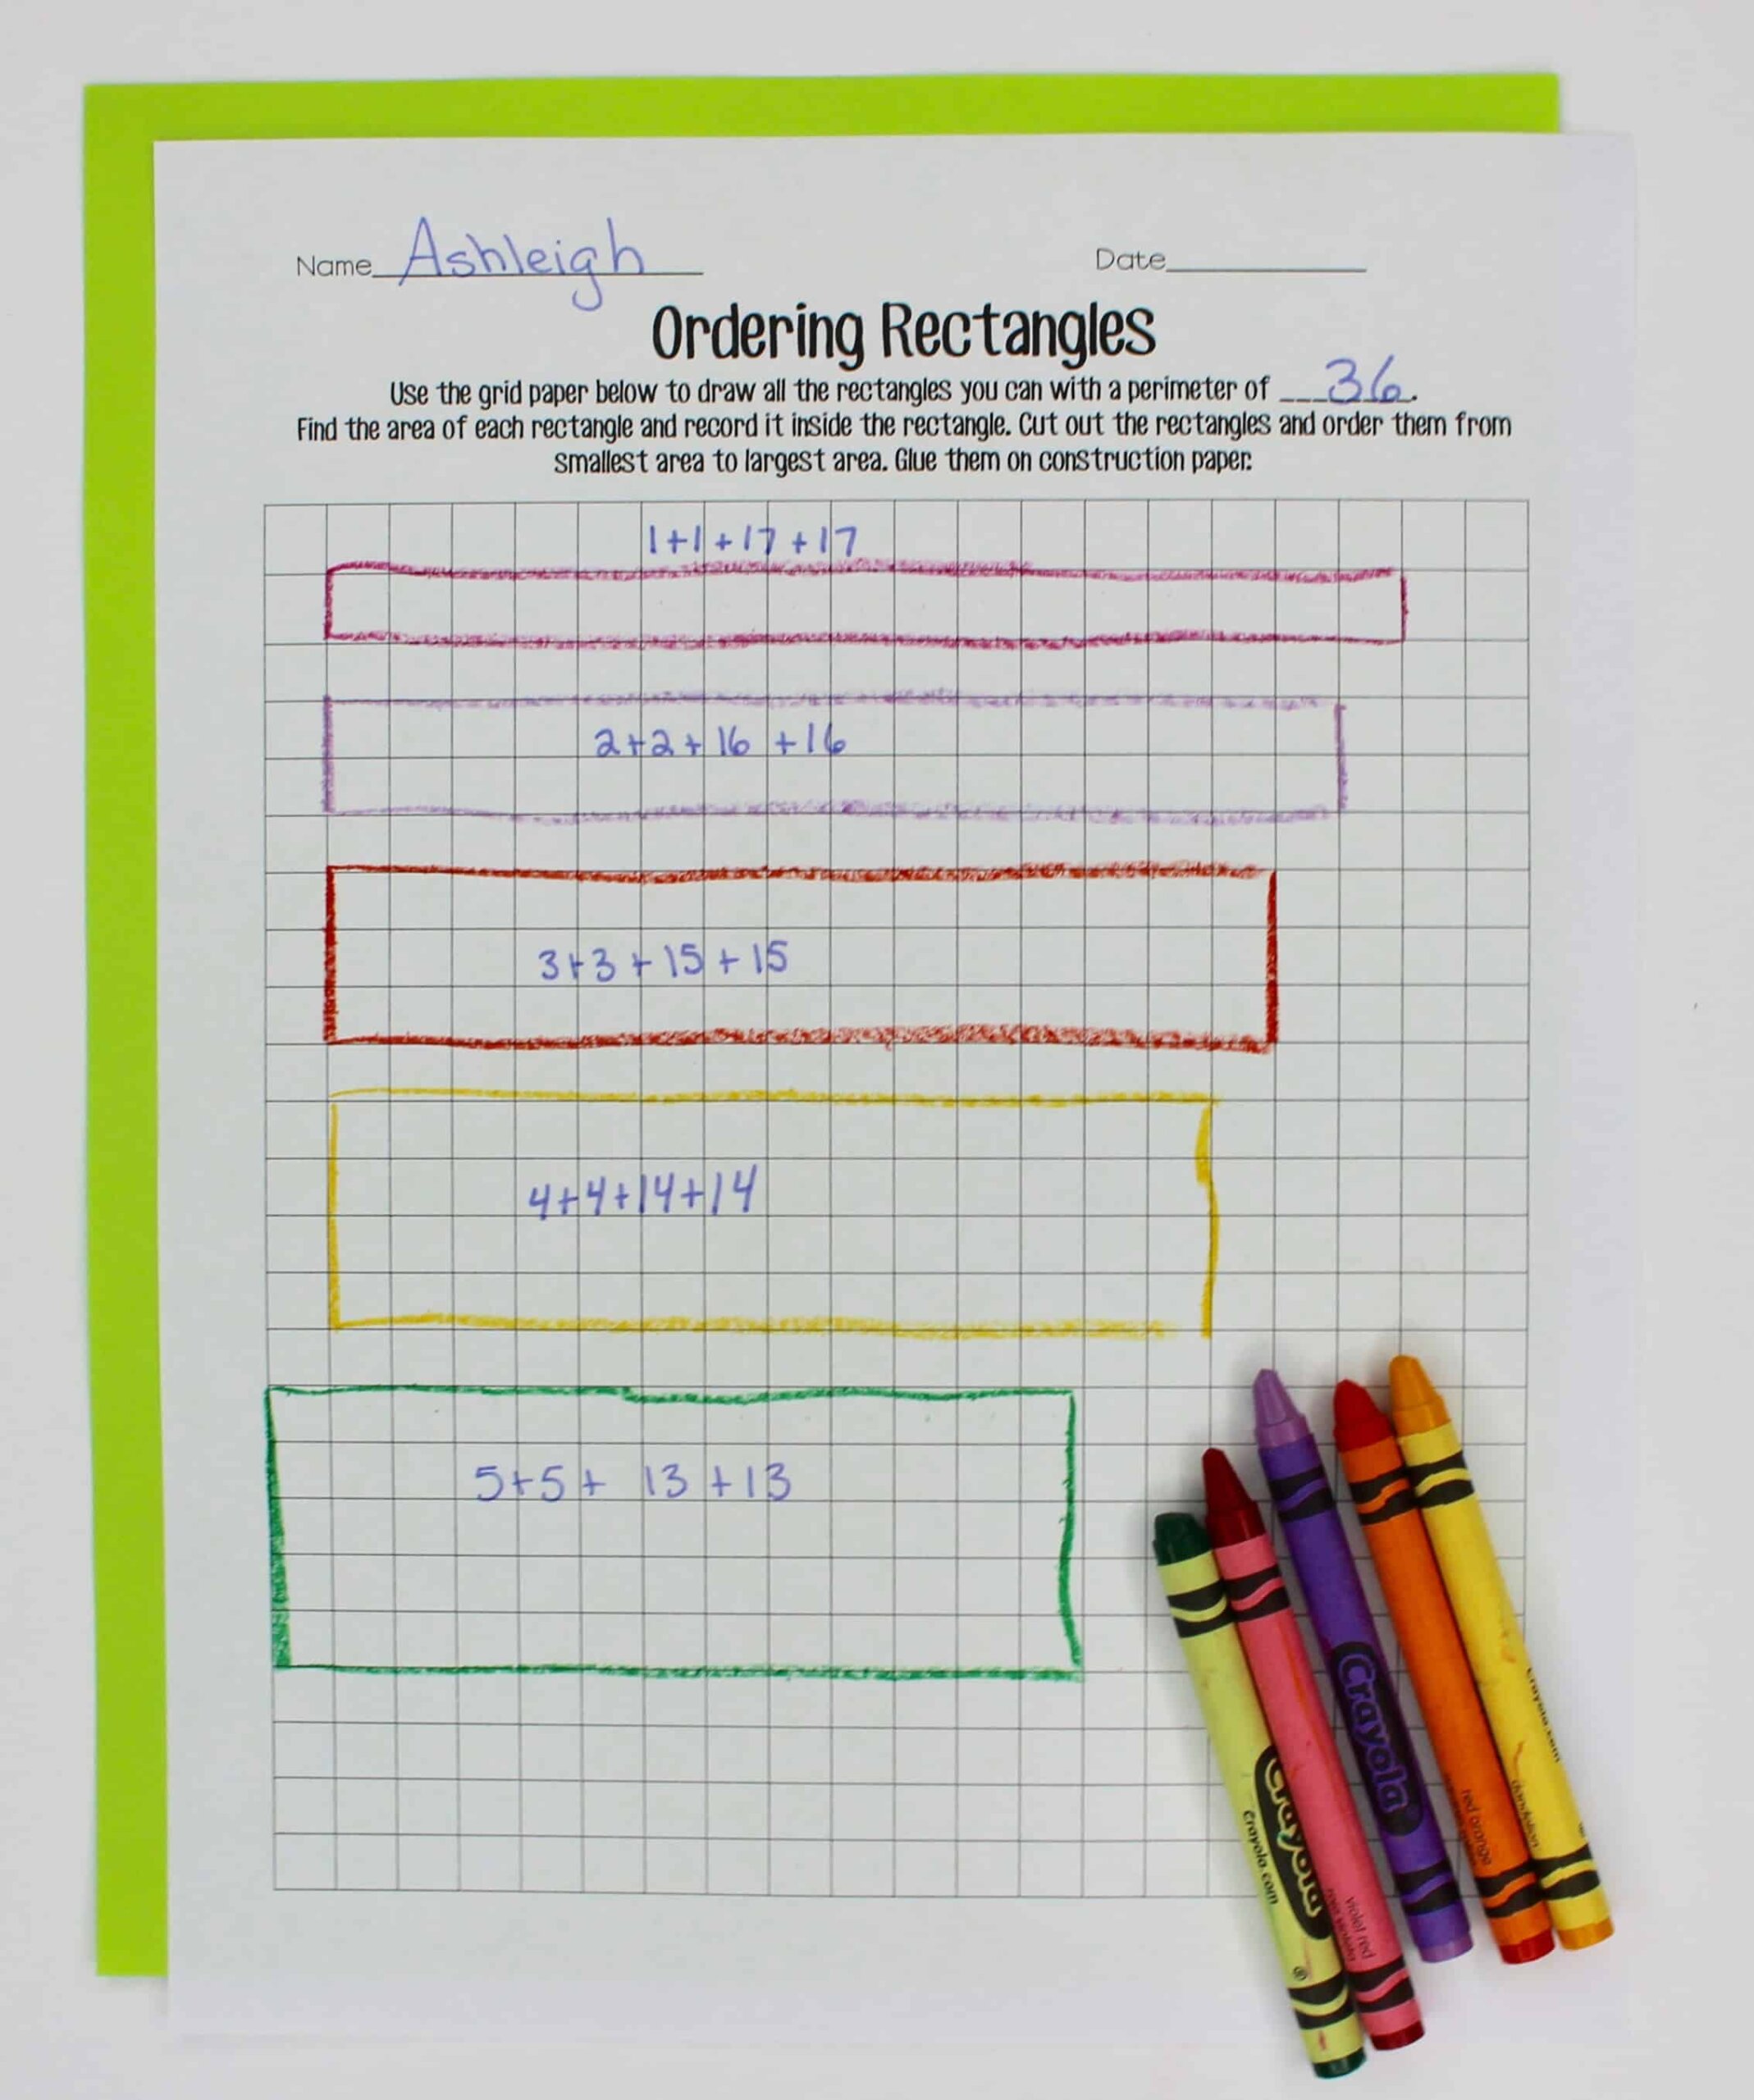 Name Ashleigh Date
Ordering Rectangles
Use the grid paper below to draw all the rectangles you can with a perimeter of 36.
Find the area of each rectangle and record it inside the rectangle. Cut out the rectangles and order them from
smallest area to largest area. Glue them on construction paper.
1+1+17+17
2+2+16+16
3+3+15+15
4+4+14+14
5+5+ 13+13
Crayola
crayola.com
Crayola
violet red
Crayola
red orange
dandelion
crayola.com